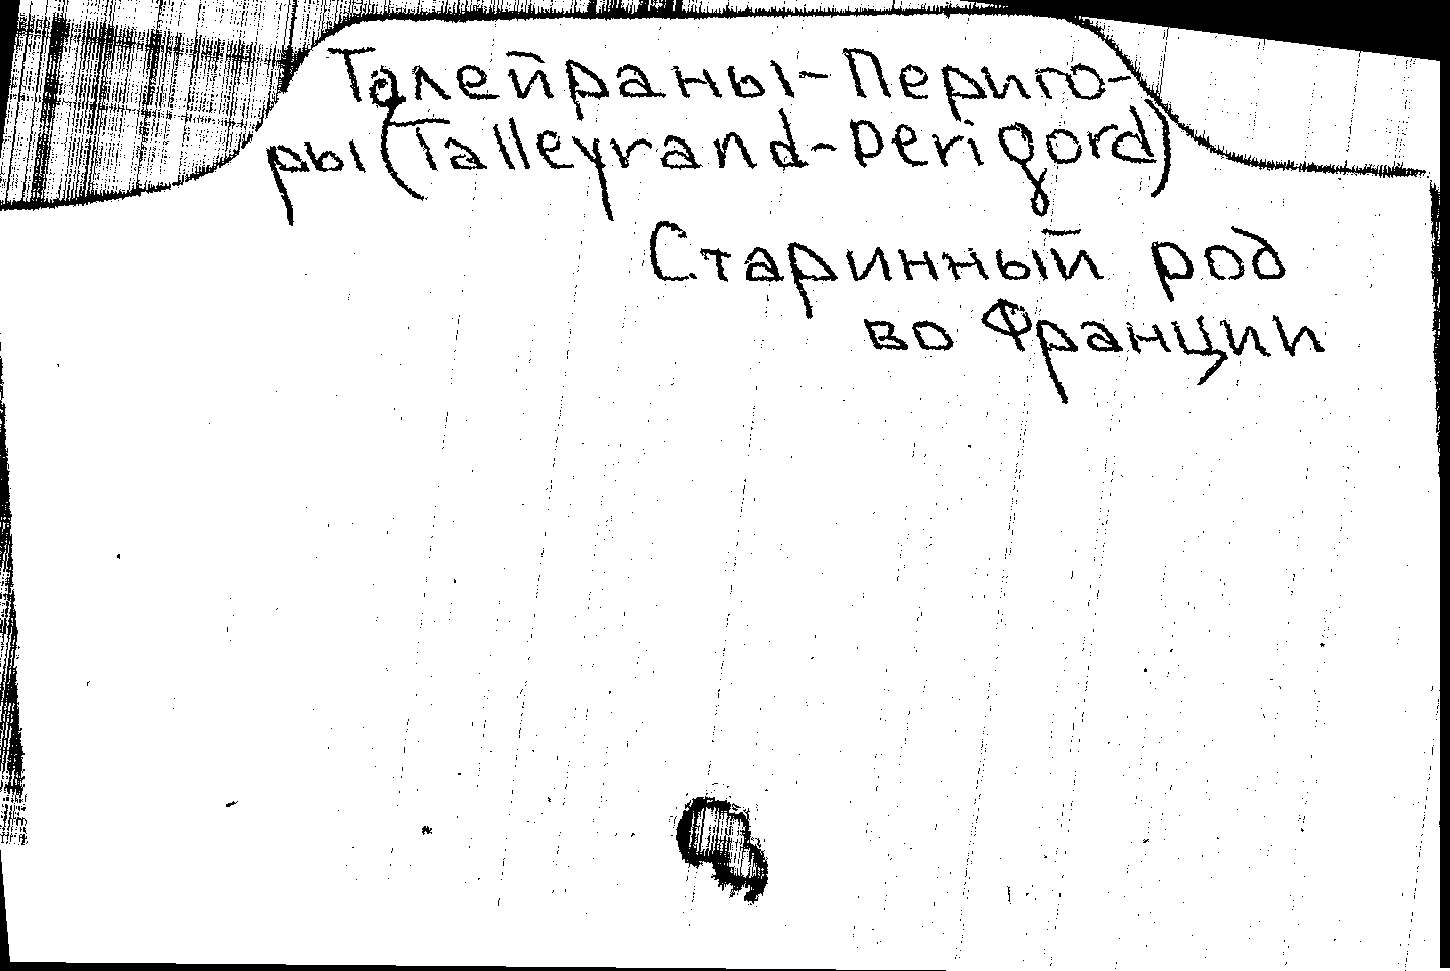 Талейраны-Периго-
ры (Talleyrand-Perigord)
Старинный род
во Франции